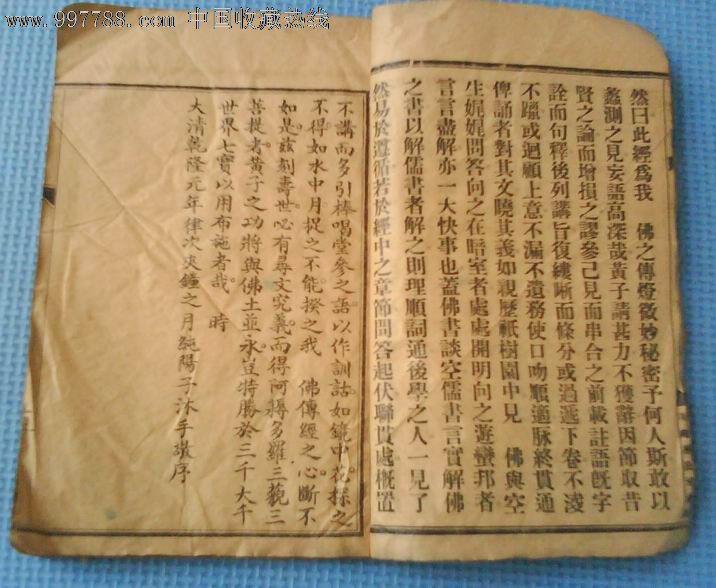 www.997788.com 中国收藏热线
然曰此經爲我　佛之傳燈微妙秘密予何人斯敢以
蠡測之見妄語高深哉黃子請甚力不獲辭因節取昔
賢之論而增損之謬參己見而串合之前載註語旣字
詮而句釋後列講旨復縷晰而條分或過遞下卷不淩
不躐或迴顧上意不漏不遺務使口吻順適脉終貫通
俾誦者對其文曉其義如親歷祇樹園中見　佛與空
生娓娓問答向之在暗室者處處開明向之遊蠻邦者
言言盡解亦一大快事也蓋佛書談空儒書言實解佛
之書以解儒書者解之則理順詞通後學之人一見了
然易於遵循若於經中之章節問答起伏聯貫處槪置
不講而多引棒喝堂參之語以作訓詁如鏡中花探之
不得如水中月捉之不能揆之我　佛傳經之心斷不
如是茲刻壽世必有尋文究義而得阿耨多羅三藐三
菩提者黃子之功將與佛土並永豈特勝於三千大千
世界七寶以用布施者哉　時
大清乾隆元年律次夾鐘之月純陽子沐手敬序